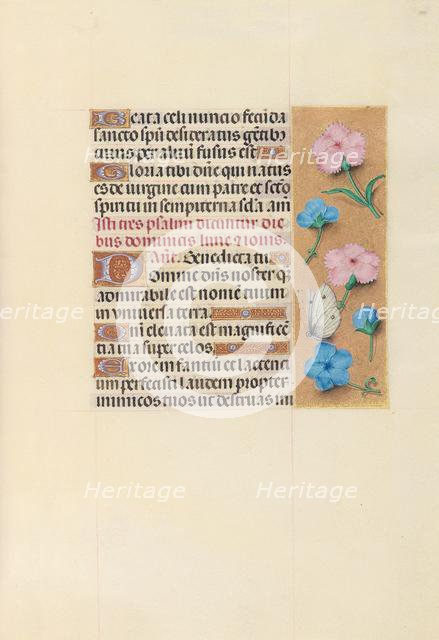 Beata celi nuncio fecunda
sancto spiritu desideratus gentibus
cuius per alvum fusus est
Gloria tibi domine qui natus
es de virgine cum patre et sancto
spiritu in sempiterna secula amen
Isti tres psalmi dicuntur die
bus dominicis lune et iovis.
Ant. Benedicta tu.
Domine dominus noster quam
admirabile est nomen tuum
in universa terra.
Quoniam elevata est magnificen
tia tua super celos.
Ex ore infantium et lactenti
um perfecisti laudem propter
inimicos tuos ut destruas ini
Heritage
Heritage
Heritage
Heritage
Heritage
Heritage